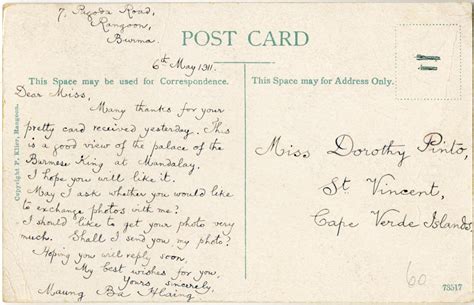 7. Pagoda Road,
Rangoon,
Burma
POST CARD
6th May 1911.
This Space may be used for Correspondence.
This Space may be used for Address Only.
Dear Miss,
Many thanks for your
pretty card received yesterday. This
is a good view of the palace of the
Burmese King at Mandalay.
I hope you will like it.
May I ask whether you would like
to exchange photos with me?
I should like to get your photo very
much. Shall I send you my photo?
Hoping you will reply soon.
My best wishes for you.
Yours sincerely,
Maung Ba Hlaing
Miss Dorothy Pinto,
St Vincent,
Cape Verde Islands.
Copyright P. Klier, Rangoon.
60
73517